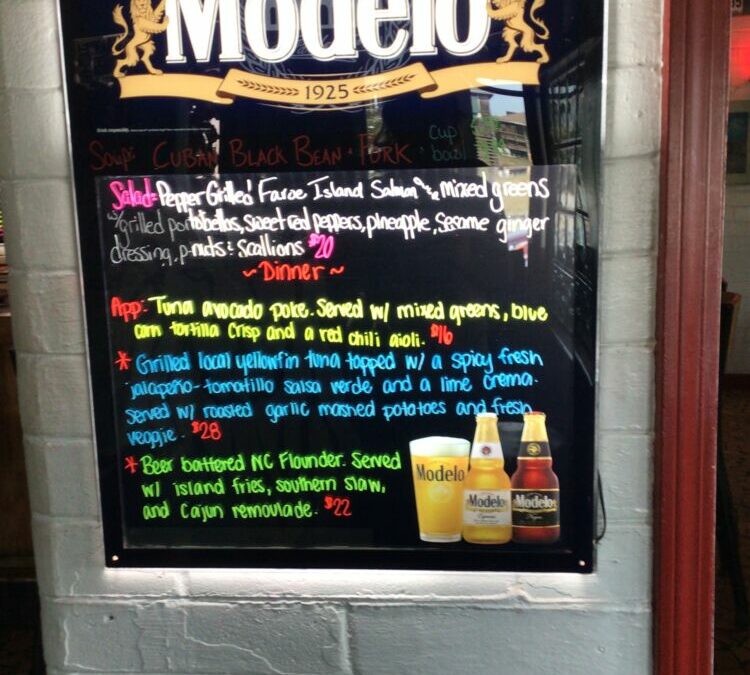 Modelo
1925
Soup: Cuban Black Bean & Pork cup
bowl
Salad: Pepper Grilled Faroe Island Salmon mixed greens
w/ Grilled portobellos, sweet red peppers, pineapple, sesame ginger
dressing, p-nuts & scallions $20
~ Dinner ~
App: Tuna avocado poke. Served w/ mixed greens, blue
corn tortilla crisp and a red chili aioli. $16
* Grilled local yellowfin tuna topped w/ a spicy fresh
jalapeño-tomatillo salsa verde and a lime crema.
Served w/ roasted garlic mashed potatoes and fresh
veggie. $28
* Beer battered NC Flounder. Served
w/ island fries, southern slaw,
and Cajun remoulade. $22
Modelo
Modelo
Especial
Modelo
Negra